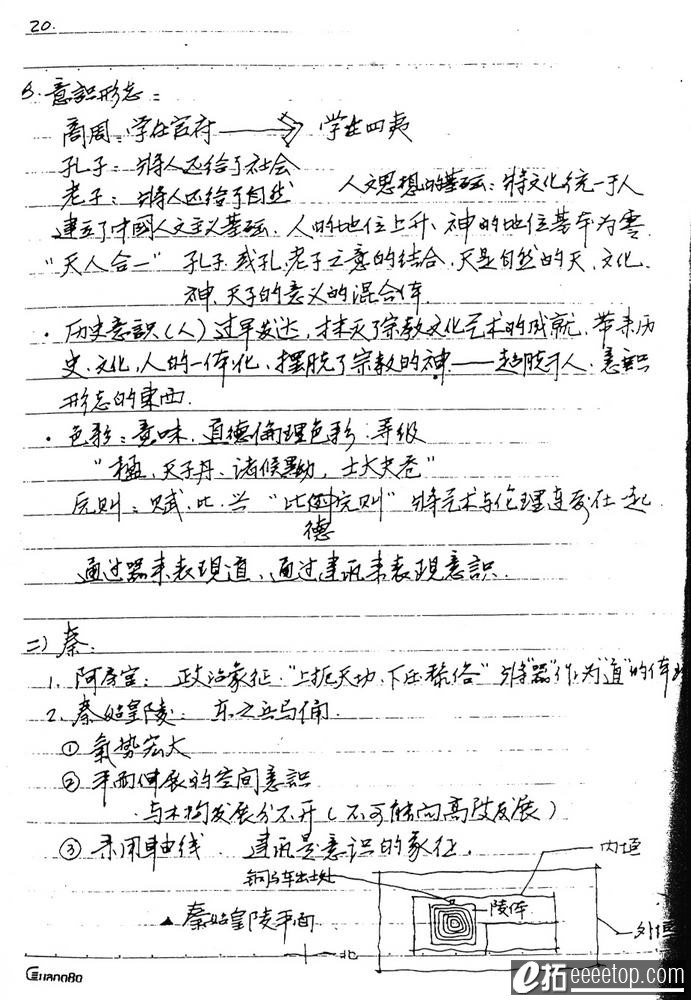 20.
B. 意識形态：
商周：学在官府 —→ 学在四夷
孔子：将人还给了社会
老子：将人还给了自然 人文思想的基础：将文化统一于人
建立了中國人文主义基础. 人的地位上升、神的地位基本为零.
“天人合一” 孔子或孔,老子之意的结合,天是自然的天,文化.
神.天子的意义的混合体.
· 历史意識(人)过早发达,抹灭了宗教文化艺术的成就.带来历
史.文化,人的一体化.摆脱了宗教的神——超脱于人.意識
形态的東西.
· 色彩：意味.道德倫理色彩.等级
“楹,天子丹、诸候黝,士大夫苍”
原则：赋.比.兴 “比例原则” 将艺术与伦理連系在一起.
德
通过器来表現道、通过建筑来表現意識.
二) 秦：
1. 阿房宫： 政治象征.“上扼天功.下压 俗” 将“器”作为“道”的体现
2. 秦始皇陵： 东之兵马俑.
① 氣势宏大
② 平面伸展的空间意識
与木构发展分不开(不可能向高段发展)
③ 采用轴线. 建筑是意识的象征.
内垣
铜马车出土处
陵体
▲ 秦始皇陵平面.
外垣
北
GuangBo
e拓eeeetop.com